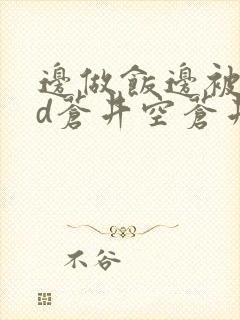 邊做飯邊被
d蒼井空蒼井
不谷